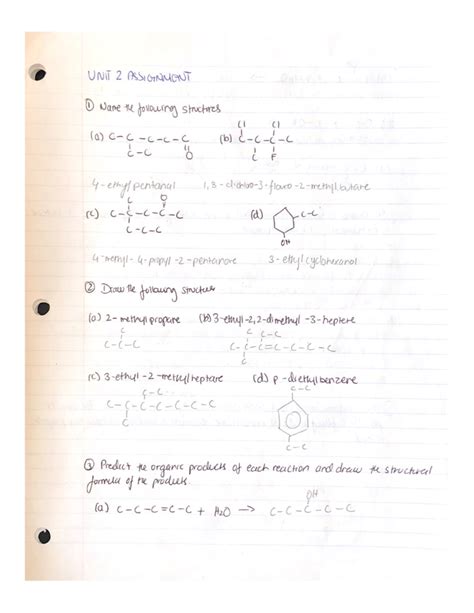 UNIT 2 ASSIGNMENT
① Name the following structures
(a) C-C-C-C-C (b) C-C-C-C
C-C O Cl Cl C F
4-ethylpentanal 1,3-dichloro-3-flouro-2-methylbutane
(c) C-C-C-C-C (d) C-C
C C-C-C O OH
4-methyl-4-propyl-2-pentanone 3-ethylcyclohexanol
② Draw the following structures
(a) 2-methylpropane (b) 3-ethyl-2,2-dimethyl-3-heptene
C C C-C
C-C-C C-C-C=C-C-C-C
C
(c) 3-ethyl-2-methylheptane (d) p-diethylbenzene
C C-C
C-C-C-C-C-C-C
C
C
C-C
③ Predict the organic products of each reaction and draw the structural
formula of the products.
OH
(a) C-C-C=C-C + H₂O → C-C-C-C-C